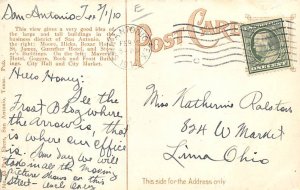 San Antonio Tex 2/1/10
This view gives a very good idea of
the large and tall buildings in the
business district of San Antonio. On
the right: Moore, Hicks, Bexar Hotel,
St. James, Gunther Hotel, and
Buildings. On the left: Maverick
Hotel, Goggan, Book and Frost Build-
ings. City Hall and City Market.
POST CARD
Hello Honey:
See the
Frost Bldg where
the arrow is, that
is where our office
is. Some day we will
take in all the moving
picture shows on this
street each
Miss Katherine Ralston
824 W Market
Lima Ohio
This side for the Address only